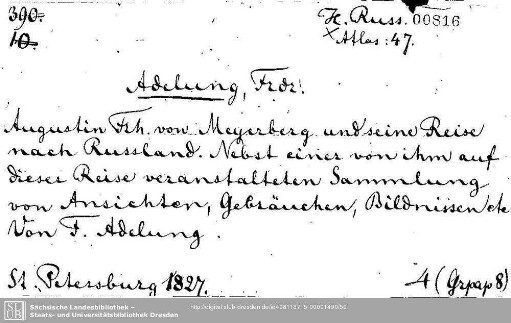 390.
10.
H. Russ. 00816
×Atlas: 47.
Adelung, Frdr.
Augustin Frh. von Meyerberg und seine Reise
nach Russland. Nebst einer von ihm auf
dieser Reise veranstalteten Sammlung
von Ansichten, Gebräuchen, Bildnissen etc
Von F. Adelung.
St. Petersburg 1827.
4 (Grpap 8)
SLUB
Sächsische Landesbibliothek –
Staats- und Universitätsbibliothek Dresden